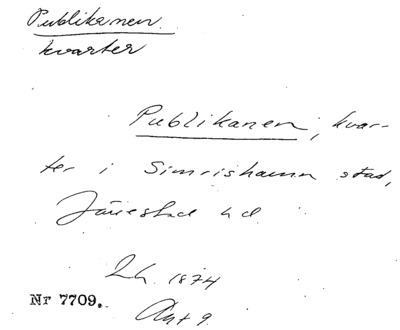 Publikanen
kvarter
Publikanen, kvar-
ter i Simrishamn stad,
Järrestad hd.
Lh. 1874
Nr 7709.
Akt 9.